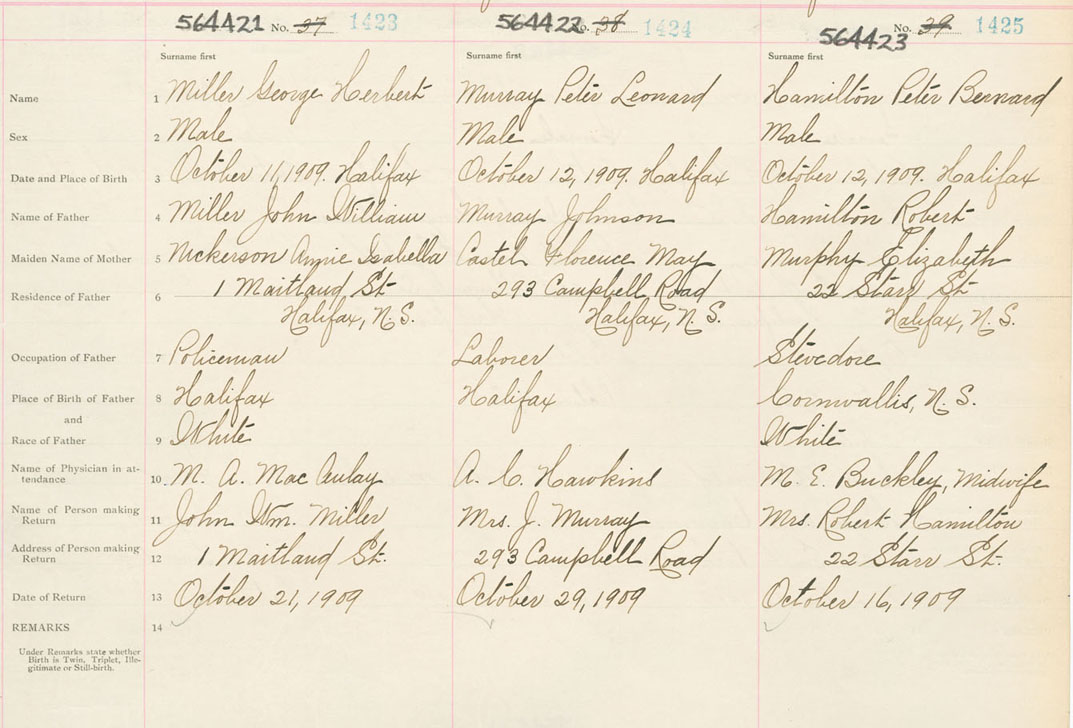 564421 No. 37 1423 564422 No. 38 1424 564423 No. 39 1425
Surname first Surname first Surname first
Name 1 Miller George Herbert Murray Peter Leonard Hamilton Peter Bernard
Sex 2 Male Male Male
Date and Place of Birth 3 October 11, 1909. Halifax October 12, 1909. Halifax October 12, 1909. Halifax
Name of Father 4 Miller John William Murray Johnson Hamilton Robert
Maiden Name of Mother 5 Nickerson Annie Isabella Castel Florence May Murphy Elizabeth
Residence of Father 6 1 Maitland St. 293 Campbell Road 22 Starr St.
Halifax, N.S. Halifax, N.S. Halifax, N.S.
Occupation of Father 7 Policeman Laborer Stevedore
Place of Birth of Father 8 Halifax Halifax Cornwallis, N.S.
and
Race of Father 9 White White
Name of Physician in at-
tendance 10. M. A. MacAulay A. C. Hawkins M. E. Buckley, Midwife
Name of Person making
Return 11 John Wm. Miller Mrs. J. Murray Mrs. Robert Hamilton
Address of Person making
Return 12 1 Maitland St. 293 Campbell Road 22 Starr St.
Date of Return 13 October 21, 1909 October 29, 1909 October 16, 1909
REMARKS 14
Under Remarks state whether
Birth is Twin, Triplet, Ille-
gitimate or Still-birth.